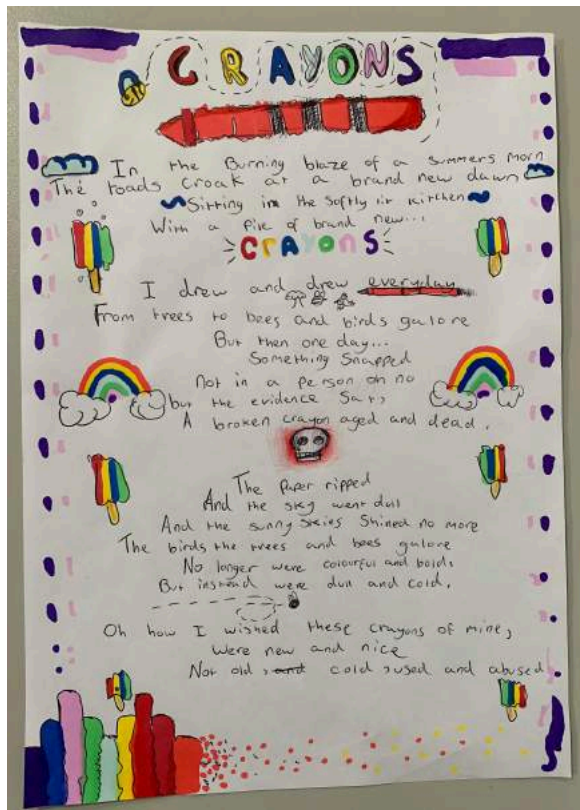 CRAYONS
In the Burning blaze of a summers morn
The toads croak at a brand new dawn
Sitting in the softly lit kitchen
With a pile of brand new...
CRAYONS
I drew and drew everyday
From trees to bees and birds galore
But then one day...
Something Snapped
Not in a person oh no
but the evidence Sat,
A broken crayon aged and dead.
The Paper ripped
And the sky went dull
And the sunny skies Shined no more
The birds the trees and bees galore
No longer were colourful and bold,
But instead were dull and cold.
Oh how I wished these crayons of mine,
Were new and nice
Not old, and cold, used and abused.